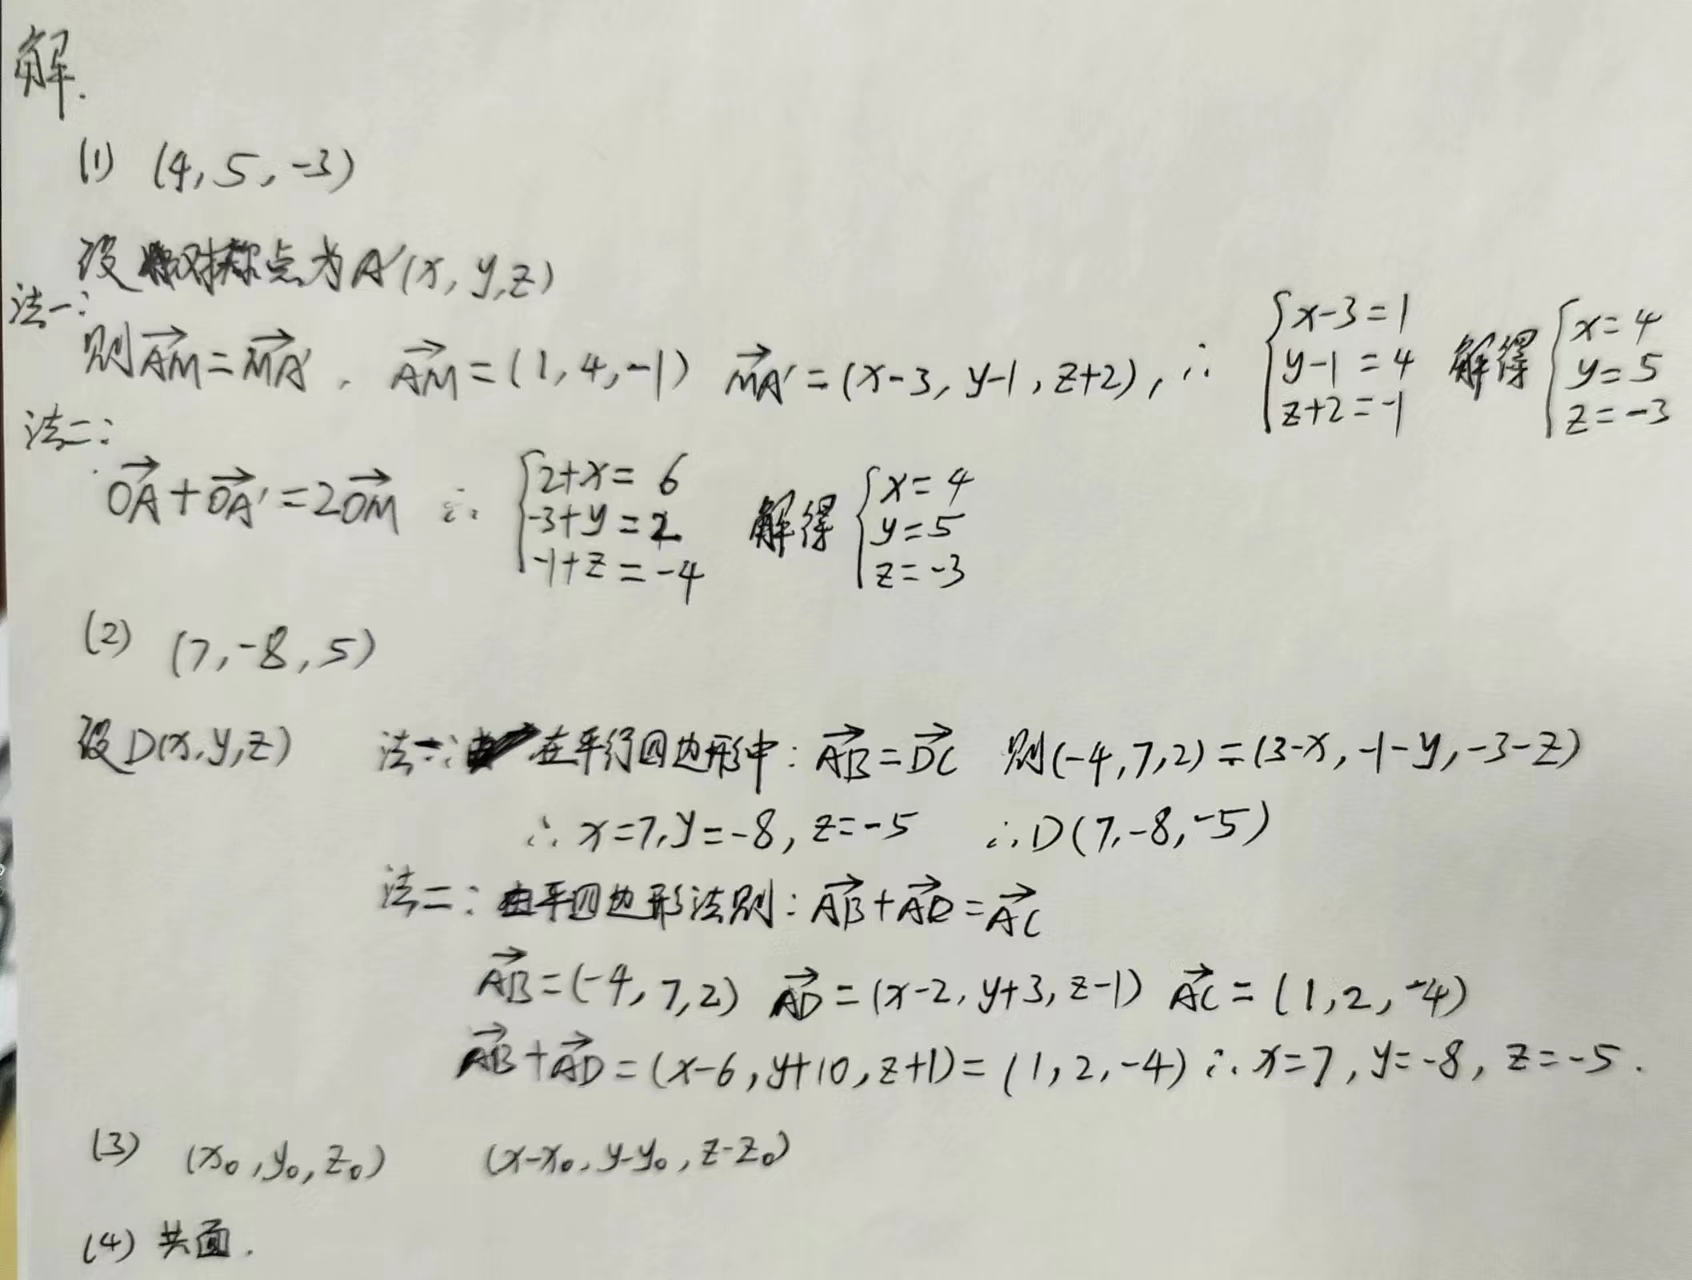 解.
(1) (4, 5, -3)
设对称点为A'(x, y, z)
法一:
则AM→=MA'→, AM→=(1, 4, -1) MA'→=(x-3, y-1, z+2), ∴ {x-3=1 y-1=4 z+2=-1 解得 {x=4 y=5 z=-3
法二:
OA→+OA'→=2OM→ ∴ {2+x=6 -3+y=2 -1+z=-4 解得 {x=4 y=5 z=-3
(2) (7, -8, 5)
设D(x, y, z) 法一: 在平行四边形中: AB→=DC→ 则(-4, 7, 2)=(3-x, -1-y, -3-z)
∴ x=7, y=-8, z=-5 ∴ D(7, -8, -5)
法二: 由平四边形法则: AB→+AD→=AC→
AB→=(-4, 7, 2) AD→=(x-2, y+3, z-1) AC→=(1, 2, -4)
AB→+AD→=(x-6, y+10, z+1)=(1, 2, -4) ∴ x=7, y=-8, z=-5.
(3) (x₀, y₀, z₀) (x-x₀, y-y₀, z-z₀)
(4) 共面.